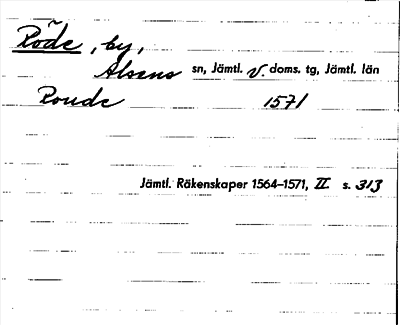 Röde, by,
Alsens sn, Jämtl. v. doms. tg, Jämtl. län
Roude 1571
Jämtl. Räkenskaper 1564–1571, II s. 313